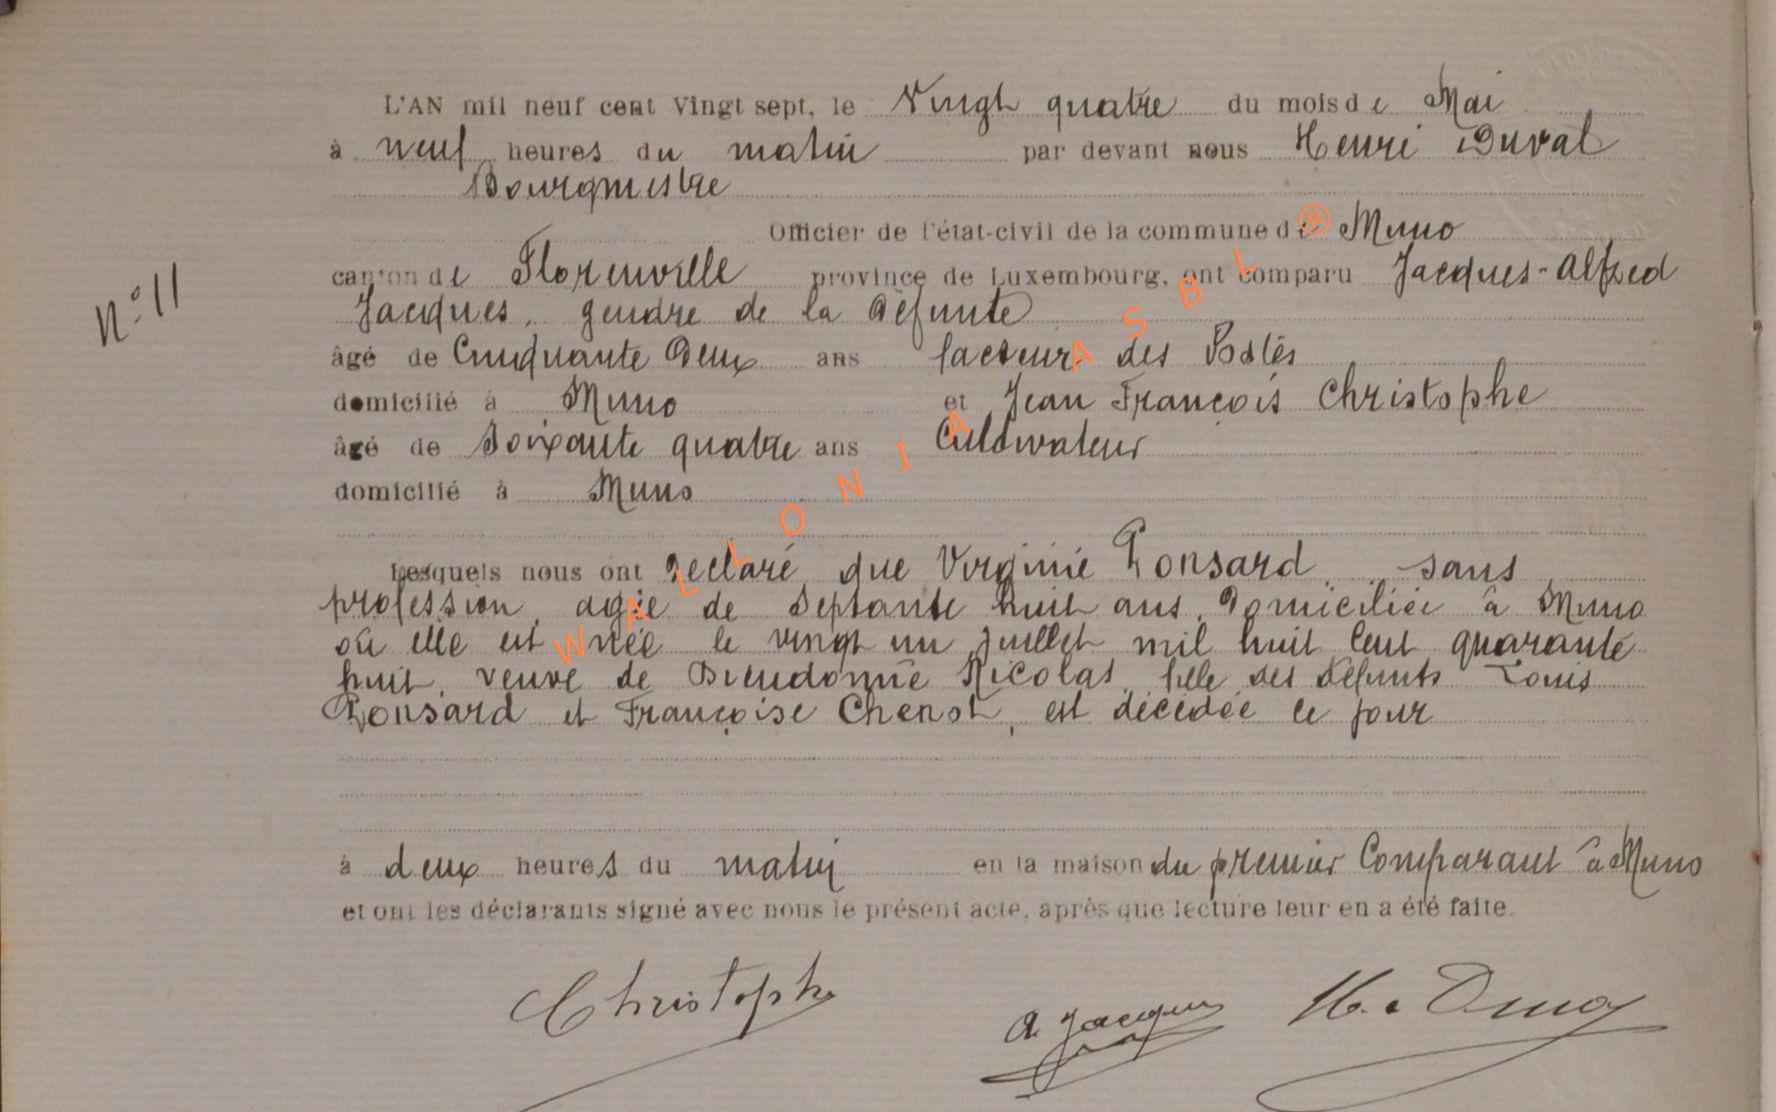 L'AN mil neuf cent Vingt sept, le Vingt quatre du mois de Mai
à neuf heures du matin par devant nous Henri Duval
Bourgmestre
Officier de l'état-civil de la commune de Muno
N° 11
canton de Florenville province de Luxembourg, ont comparu Jacques-Alfred
Jacques, gendre de la défunte
âgé de Cinquante Deux ans facteur des Postes
domicilié à Muno et Jean François Christophe
âgé de Soixante quatre ans Cultivateur
domicilié à Muno
Lesquels nous ont déclaré que Virginie Ponsard, sans
profession, agée de Septante huit ans, Domiciliée à Muno
où elle est née le vingt un Juillet mil huit Cent quarante
huit, veuve de Dieudonné Nicolas, fille des défunts Louis
Ponsard et Françoise Chenot, est décédée ce jour
à deux heures du matin en la maison du premier Comparant à Muno
et ont les déclarants signé avec nous le présent acte, après que lecture leur en a été faite.
Christophe A. Jacques H. Duval
WALLONIA ASBL ®